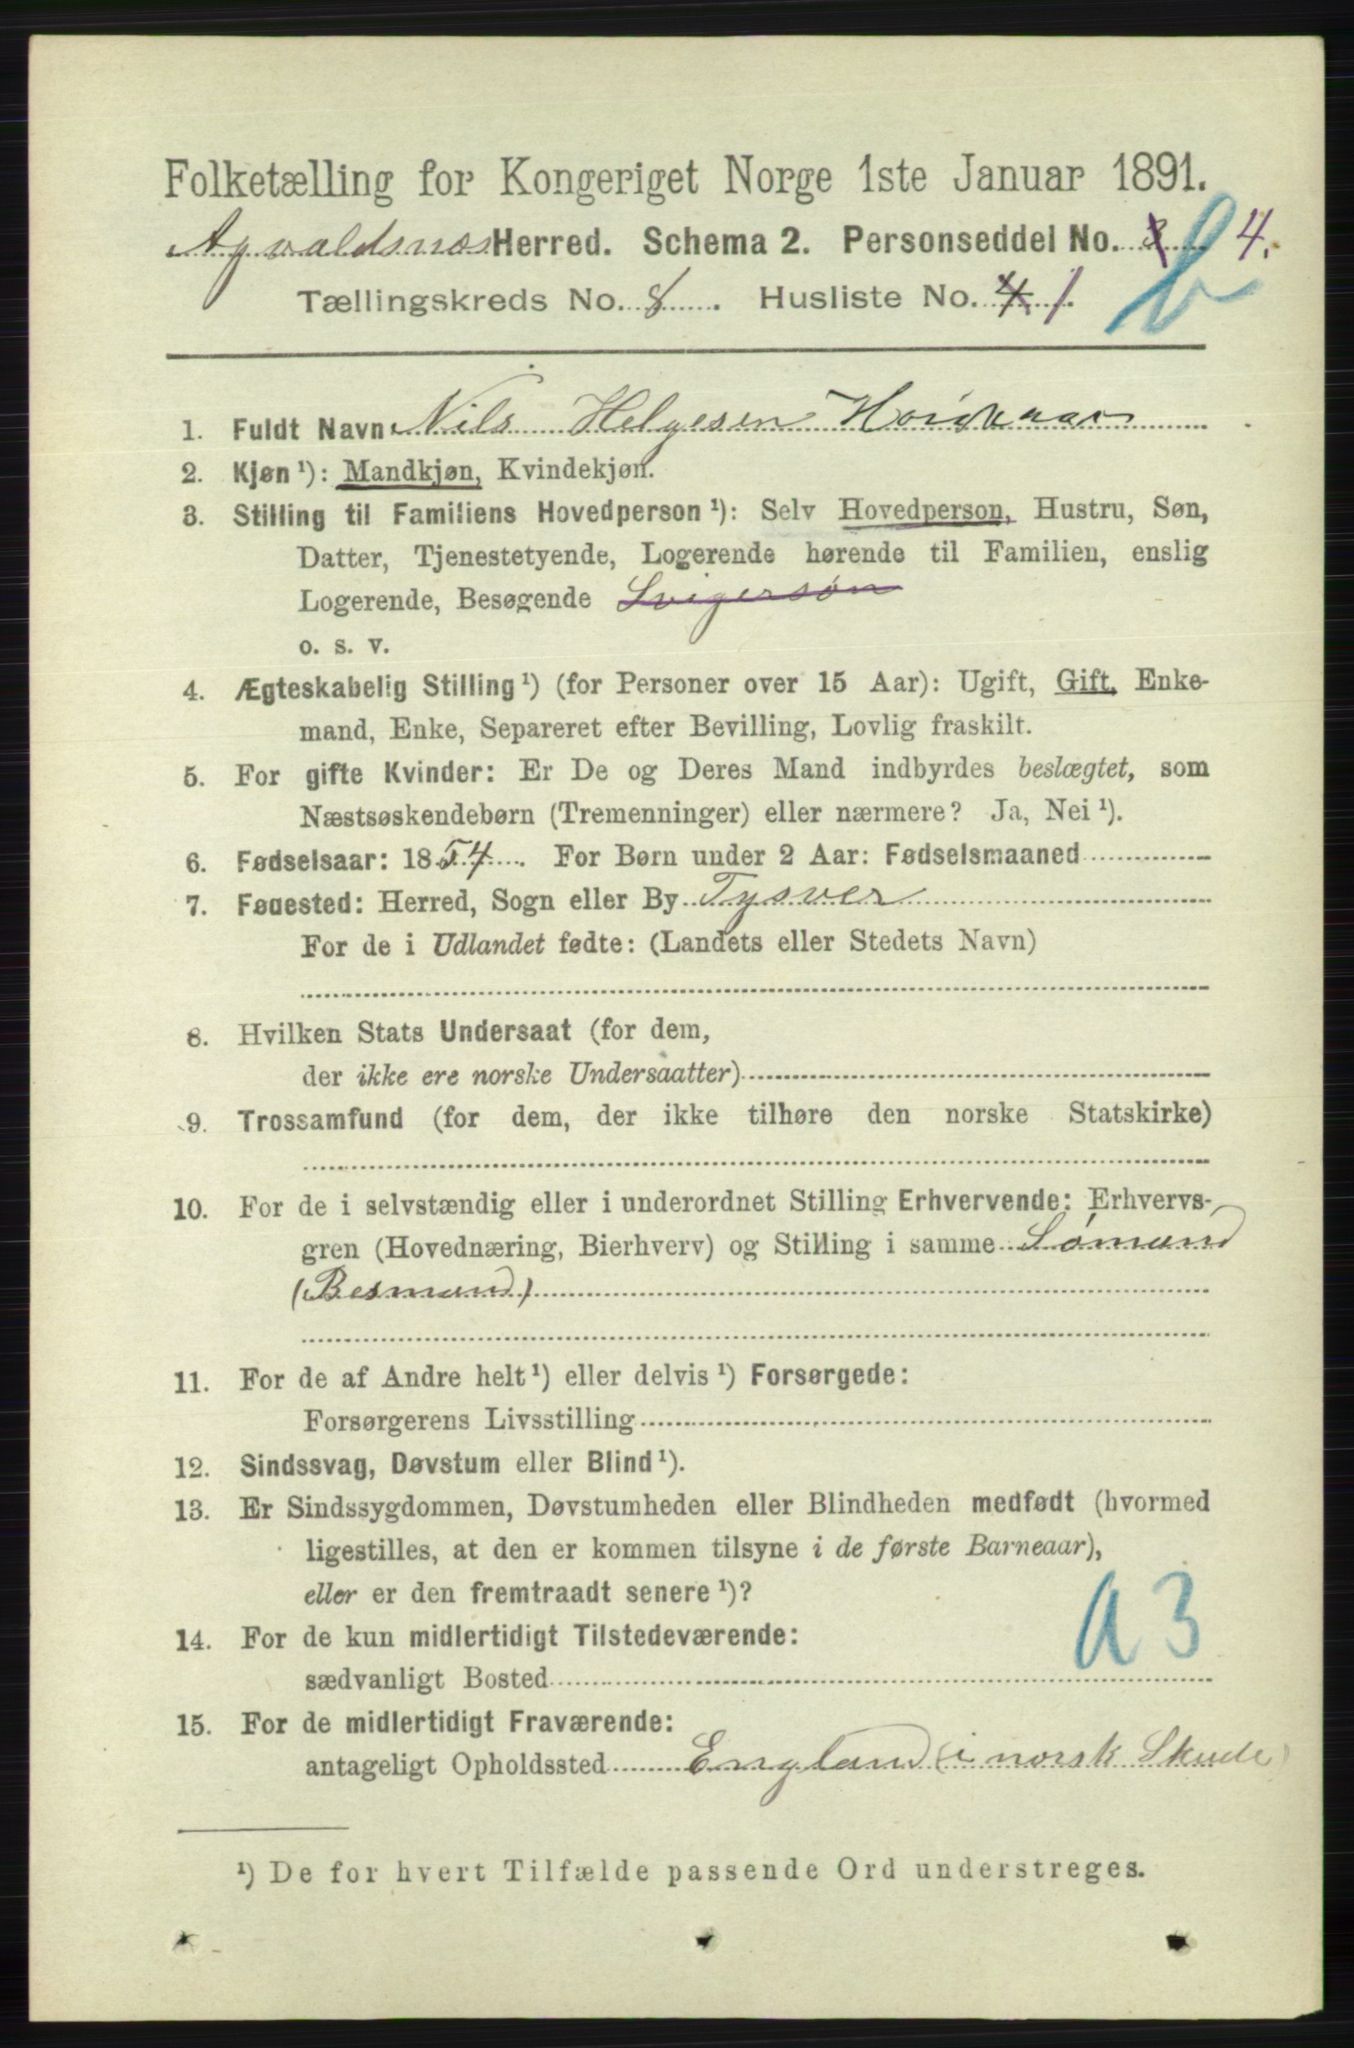 Folketælling for Kongeriget Norge 1ste Januar 1891.
Agvaldsnæs Herred. Schema 2. Personseddel No. 3 4.
Tællingskreds No. 8. Husliste No. 4 1.
b
1. Fuldt Navn Nils Helgesen
2. Kjøn ¹): Mandkjøn, Kvindekjøn.
3. Stilling til Familiens Hovedperson ¹): Selv Hovedperson, Hustru, Søn,
Datter, Tjenestetyende, Logerende hørende til Familien, enslig
Logerende, Besøgende Svigersøn
o. s. v.
4. Ægteskabelig Stilling ¹) (for Personer over 15 Aar): Ugift, Gift, Enke-
mand, Enke, Separeret efter Bevilling, Lovlig fraskilt.
5. For gifte Kvinder: Er De og Deres Mand indbyrdes beslægtet, som
Næstsøskendebørn (Tremenninger) eller nærmere? Ja, Nei ¹).
6. Fødselsaar: 1854. For Børn under 2 Aar: Fødselsmaaned
7. Fødested: Herred, Sogn eller By Tysver
For de i Udlandet fødte: (Landets eller Stedets Navn)
8. Hvilken Stats Undersaat (for dem,
der ikke ere norske Undersaatter)
9. Trossamfund (for dem, der ikke tilhøre den norske Statskirke)
10. For de i selvstændig eller i underordnet Stilling Erhvervende: Erhvervs-
gren (Hovednæring, Bierhverv) og Stilling i samme Sømand
(Besmand)
11. For de af Andre helt ¹) eller delvis ¹) Forsørgede:
Forsørgerens Livsstilling
12. Sindssvag, Døvstum eller Blind ¹).
13. Er Sindssygdommen, Døvstumheden eller Blindheden medfødt (hvormed
ligestilles, at den er kommen tilsyne i de første Barneaar),
eller er den fremtraadt senere ¹)?
a 3
14. For de kun midlertidigt Tilstedeværende:
sædvanligt Bosted
15. For de midlertidigt Fraværende:
antageligt Opholdssted England (i norsk Skude)
¹) De for hvert Tilfælde passende Ord understreges.